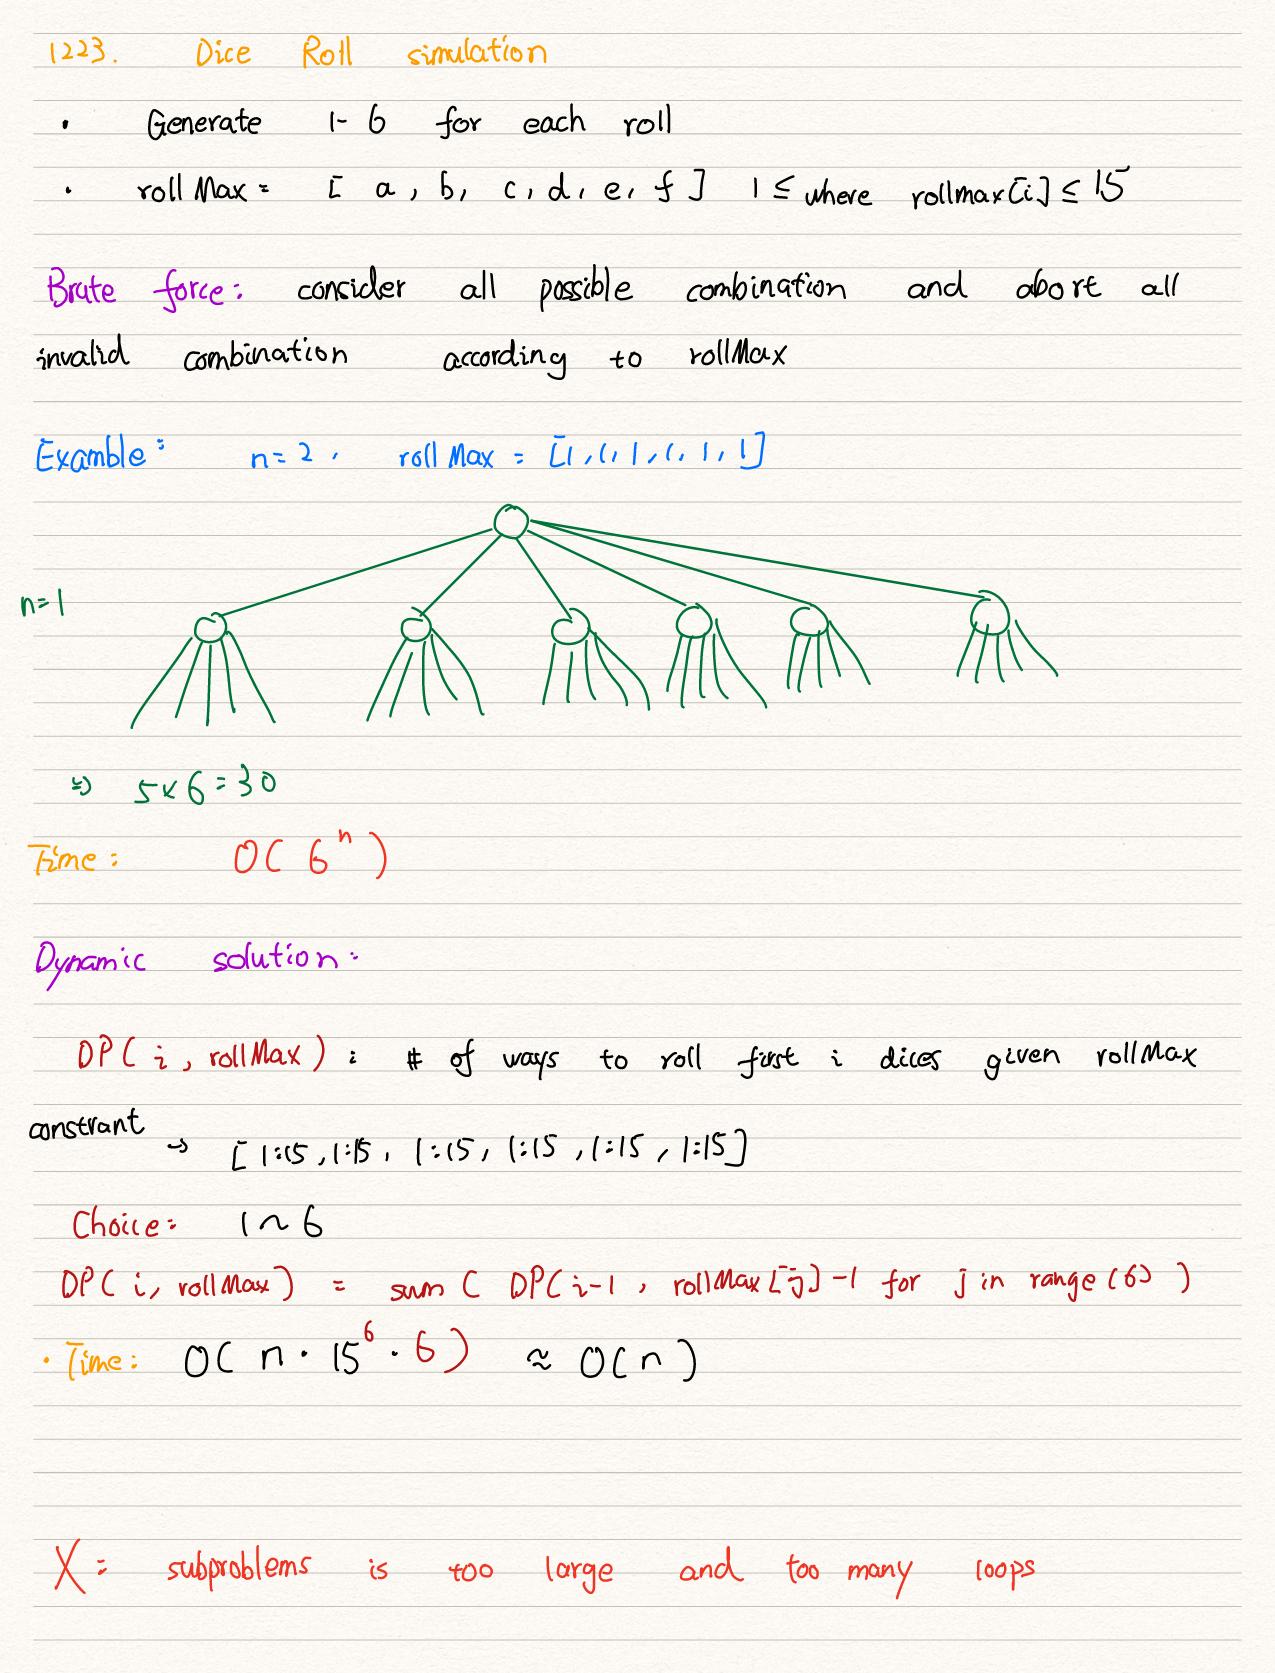 1223. Dice Roll simulation
· Generate 1-6 for each roll
· rollMax = [ a, b, c, d, e, f ] 1 ≤ where rollmax[i] ≤ 15
Brute force: consider all possible combination and abort all
invalid combination according to rollMax
Examble: n=2, rollMax = [1,1,1,1,1,1]
n=1
=> 5×6=30
Time: O( 6^n )
Dynamic solution:
DP( i, rollMax ) : # of ways to roll first i dices given rollMax
constrant → [ 1:15, 1:15, 1:15, 1:15, 1:15, 1:15]
Choice: 1~6
DP( i, rollMax ) = sum ( DP( i-1, rollMax[j]-1 for j in range(6) )
· Time: O( n · 15^6 · 6) ≈ O( n )
X: subproblems is too large and too many loops